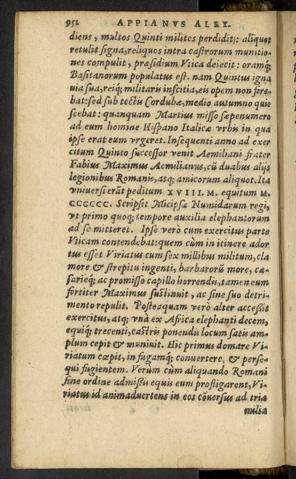 952 APPIANVS ALEX.
diens, multos Quinti milites perdidit: aliquot
retulit signa, reliquos intra castrorum munitio-
nes compulit, præsidium Vtica deiecit: oramq́;
Bastanorum populatus est. nam Quintus igna
uia sua, reiq́; militaris inscitia, eis opem non fere-
bat: sed sub tectis Cordubæ, medio autumno quie
scebat: quanquam Martius misso sæpenumero
ad eum homine Hispano Italicæ vrbis in qua
ipse erat eum vrgeret. Insequenti anno ad exer
citum Quinto successor venit Aemiliani frater
Fabius Maximus Aemilianus, cū duabus alijs
legionibus Romanis, atq; amicorum aliquot. Ita
vniuersi erāt peditum XVIII. M. equitum M.
CCCCCC. Scripsit Micipsæ Numidarum regi,
vt primo quoq; tempore auxilia elephantorum
ad se mitteret. Ipse verò cum exercitus parte
Vticam contendebat: quem cùm in itinere ador
tus esset Viriatus cum sex millibus militum, cla
more & strepitu ingenti, barbarorū more, cæ-
sarieq́; ac promisso capillo horrendi, tamen eum
fortiter Maximus sustinuit, ac sine suo detri-
mento repulit. Postea quam verò alter accessit
exercitus, atq; vnà ex Africa elephanti decem,
equiq́; trecenti, castris ponendis locum satis am-
plum cepit & muniuit. Hic primus domare Vi-
riatum cœpit, in fugamq́; conuertere, & perse-
qui fugientem. Verùm cùm aliquando Romani
sine ordine admissis equis eum profligarent, Vi-
riatus id animaduertens in eos cōuersus ad tria
millia